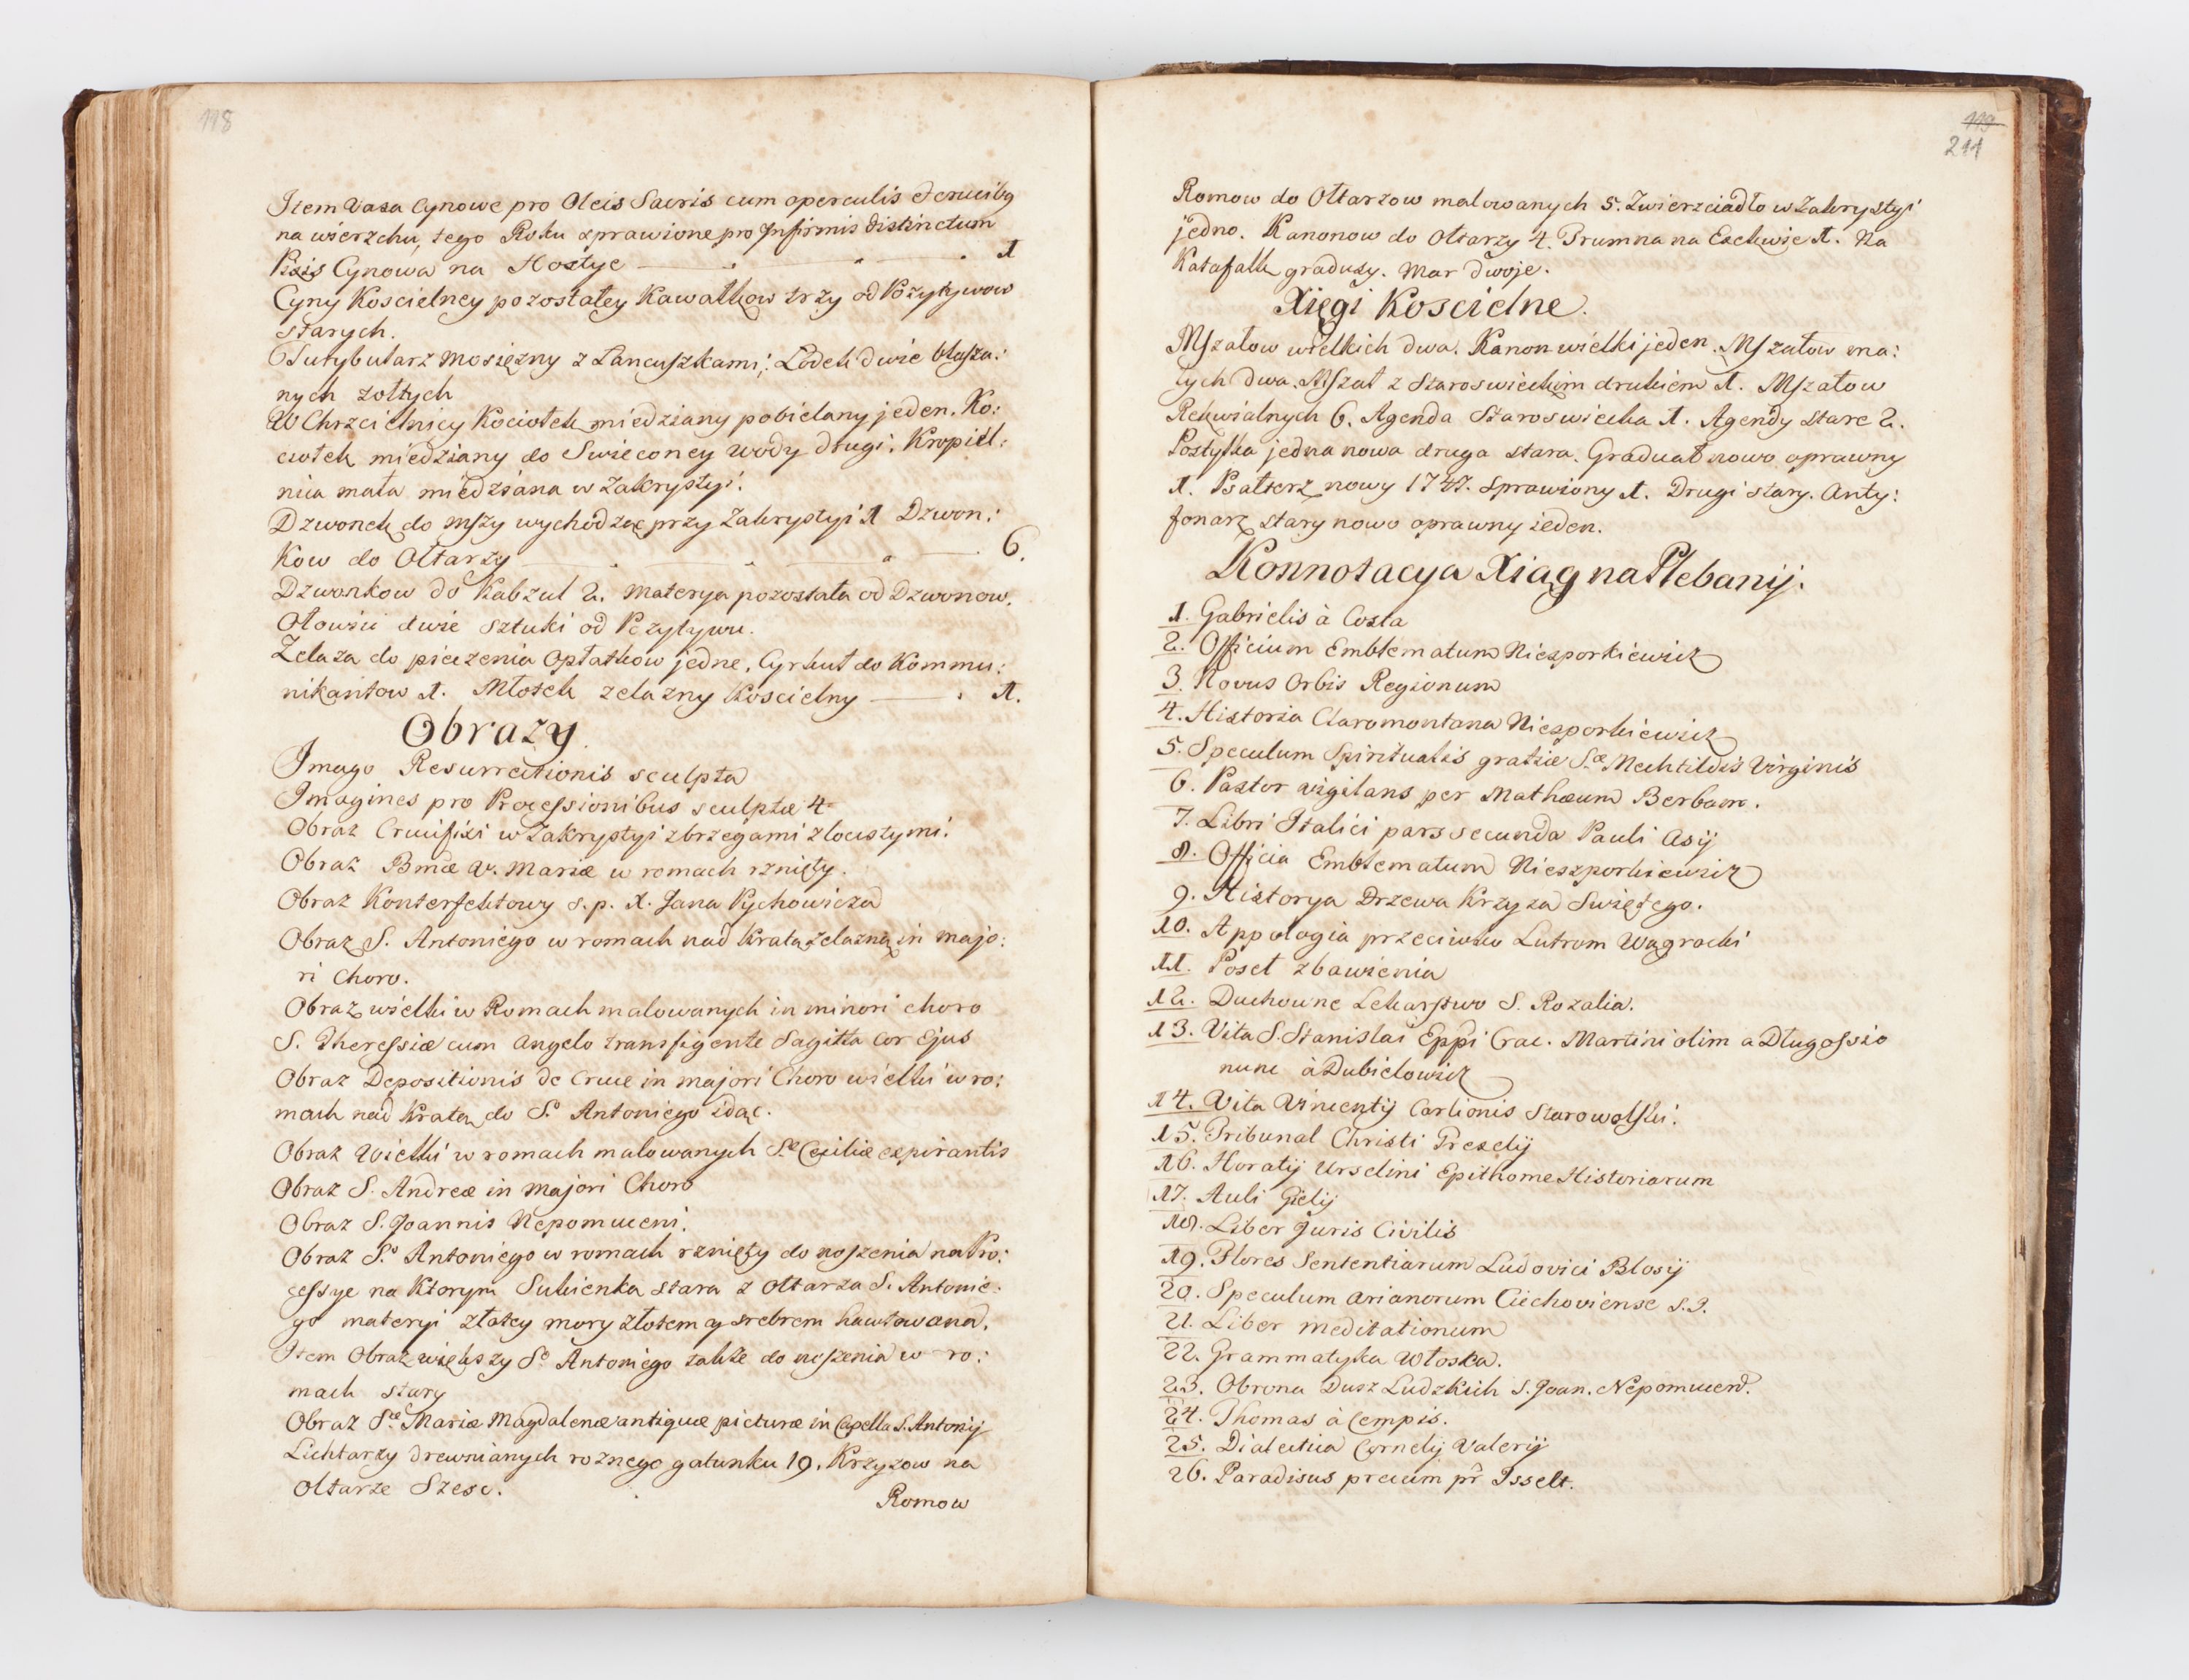 118
Item Vasa Cynowe pro Oleis Sacris cum operculis et crucibq
na wierzchu, tego Roku sprawione pro Infirmis distinctum
Pixis Cynowa na Hostye 1
Cyny Koscielney pozostałey Kawałkow trzy od Pozytywow
starych.
Turybularz mosiężny z Lancuszkami; Lodek dwie blasza:
nych zołtych
W Chrzcielnicy Kociołek miedziany pobielany jeden. Ko:
ciołek miedziany do Swięconey wody drugi. Kropiel:
nica mała miedziana w Zakrystyi.
Dzwonek do mszy wychodząc przy Zakrystyi 1 Dzwon:
Kow do Ołtarzy 6.
Dzwonkow do Kabzul 2. Materya pozostała od Dzwonow.
Ołowiu dwie sztuki od Pozytywu.
Zelaza do pieczenia Opłatkow jedne, Cyrkuł do Kommu:
nikantow 1. Młotek zelazny Koscielny 1.
Obrazy
Imago Resurrectionis sculpta
Imagines pro Processionibus sculptæ 4
Obraz Crucifixi w Zakrystyi z brzegami złocistymi.
Obraz Bmæ V. Mariæ w romach rznięty.
Obraz Konterfektowy s.p. X. Jana Pychowicza
Obraz S. Antoniego w romach nad Kratą zelazną in majo:
ri Choro.
Obraz wielki w Romach malowanych in minori choro
S. Theressiæ cum Angelo transfigente Sagitta Cor Ejus
Obraz Depositionis de Cruce in majori Choro wielki w ro:
mach nad Kratą do S.o Antoniego idąc.
Obraz Wielki w romach malowanych S.æ Ceciliæ expirantis
Obraz S. Andreæ in Majori Choro
Obraz S. Joannis Nepomuceni.
Obraz S.o Antoniego w romach rznięty do noszenia na Pro:
cessye na Ktorym Sukienka stara z Ołtarza S. Antonie:
go materyi złotey mory złotem y srebrem hawtowana.
Item Obraz większy S.o Antoniego także do noszenia w ro:
mach stary
Obraz S.æ Mariæ Magdalenæ antiquæ picturæ in Capella S. Antonij
Lichtarzy drewnianych roznego gatunku 19. Krzyzow na
Ołtarze Szesc.
Romow
119
211
Romow do Ołtarzow malowanych 5. Zwierzciadło w Zakrystyi
jedno. Kanonow do Ołtarzy 4. Trumna na Exekwie 1. Na
Katafalk gradusy. Mar dwoje.
Xięgi Koscielne.
Mszałow wielkich dwa. Kanon wielki jeden. Mszałow ma:
łych dwa. Mszał z Staroswieckim drukiem 1. Mszałow
Rekwialnych 6. Agenda Staroswiecka 1. Agendy stare 2.
Postylla jedna nowa druga stara. Graduał nowo oprawny
1. Psałterz nowy 1747. Sprawiony 1. Drugi stary. Anty:
fonarz stary nowo oprawny ieden.
Konnotacya Xiąg na Plebanij.
1. Gabrielis à Costa
2. Officium Emblematum Nieszporkiewicz
3. Novus Orbis Regionum
4. Historia Claromontana Nieszporkiewicz
5. Speculum Spiritualis gratiæ S.æ Mechtildis Virginis
6. Pastor vigilans per Mathæum Berbam.
7. Libri Italici pars secunda Pauli Asij
8. Officia Emblematum Nieszporkiewicz
9. Historya Drzewa Krzyza Swiętego.
10. Appologia przeciwko Lutrom Wągrocki
11. Poseł zbawienia
12. Duchowne Lekarstwo S. Rozalia.
13. Vita S. Stanislai Eppi Crac. Martini olim a Długossio
nunc à Dubielowicz
14. Vita Vincentij Carlionis Starowolski.
15. Tribunal Christi Preselij
16. Horatij Urselini Epithome Historiarum
17. Auli Gielij
18. Liber Juris Civilis
19. Flores Sententiarum Ludovici Blosij
20. Speculum Arianorum Ciechoviense S.J.
21. Liber Meditationum
22. Grammatyka Włoska.
23. Obrona Dusz Ludzkich S. Joan. Nepomucen.
24. Thomas à Cempis.
25. Dialectica Cornelij Valerij
26. Paradisus precum pr Isselt.